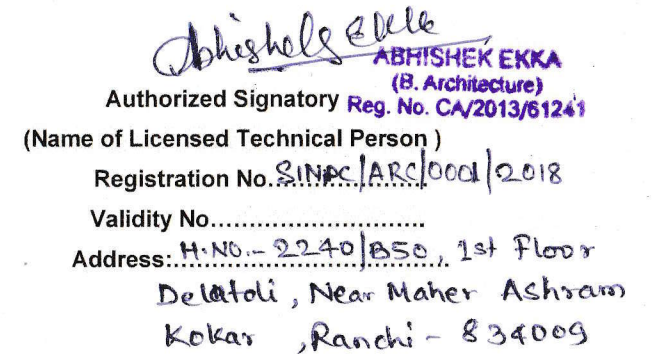 Abhishek Ekka
ABHISHEK EKKA
(B. Architecture)
Authorized Signatory Reg. No. CA/2013/61241
(Name of Licensed Technical Person )
Registration No. SINPC/ARC/0001/2018
Validity No............................
Address: H.NO.- 2240/B50, 1st Floor
Delatoli, Near Maher Ashram
Kokar, Ranchi - 834009